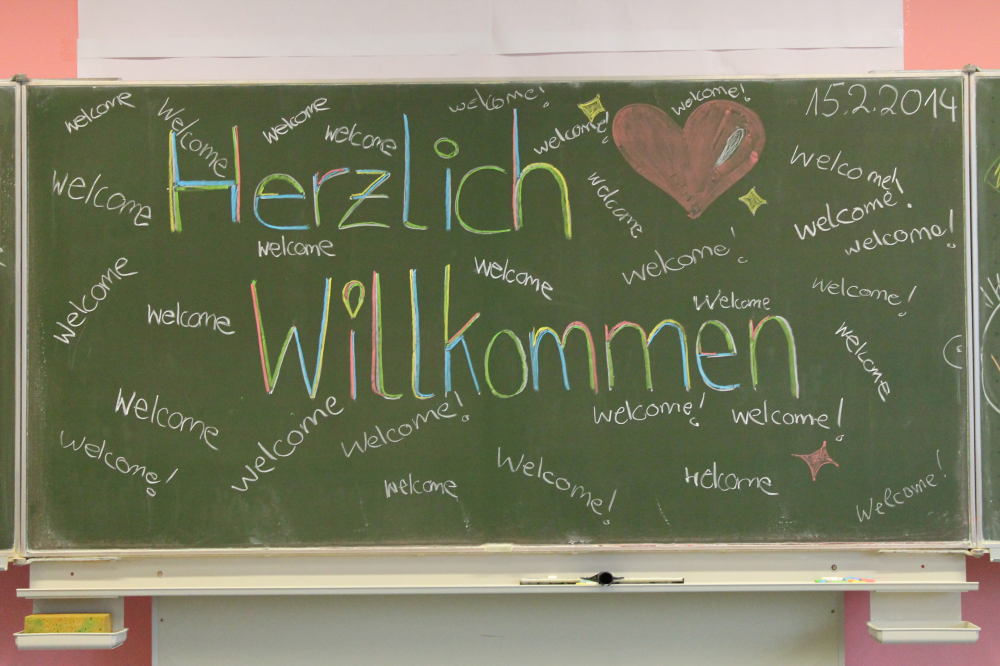 welcome
Welcome
welcome
welcome
welcome!
welcome!
welcome!
15.2.2014
Herzlich
welcome!
welcome
welcome
welcome!
welcome!
welcome
welcome!
welcome
welcome
welcome!
Welcome
welcome
Willkommen
welcome
welcome!
welcome!
Welcome
welcome!
welcome
welcome!
Welcome!
welcome
welcome
Welcome!